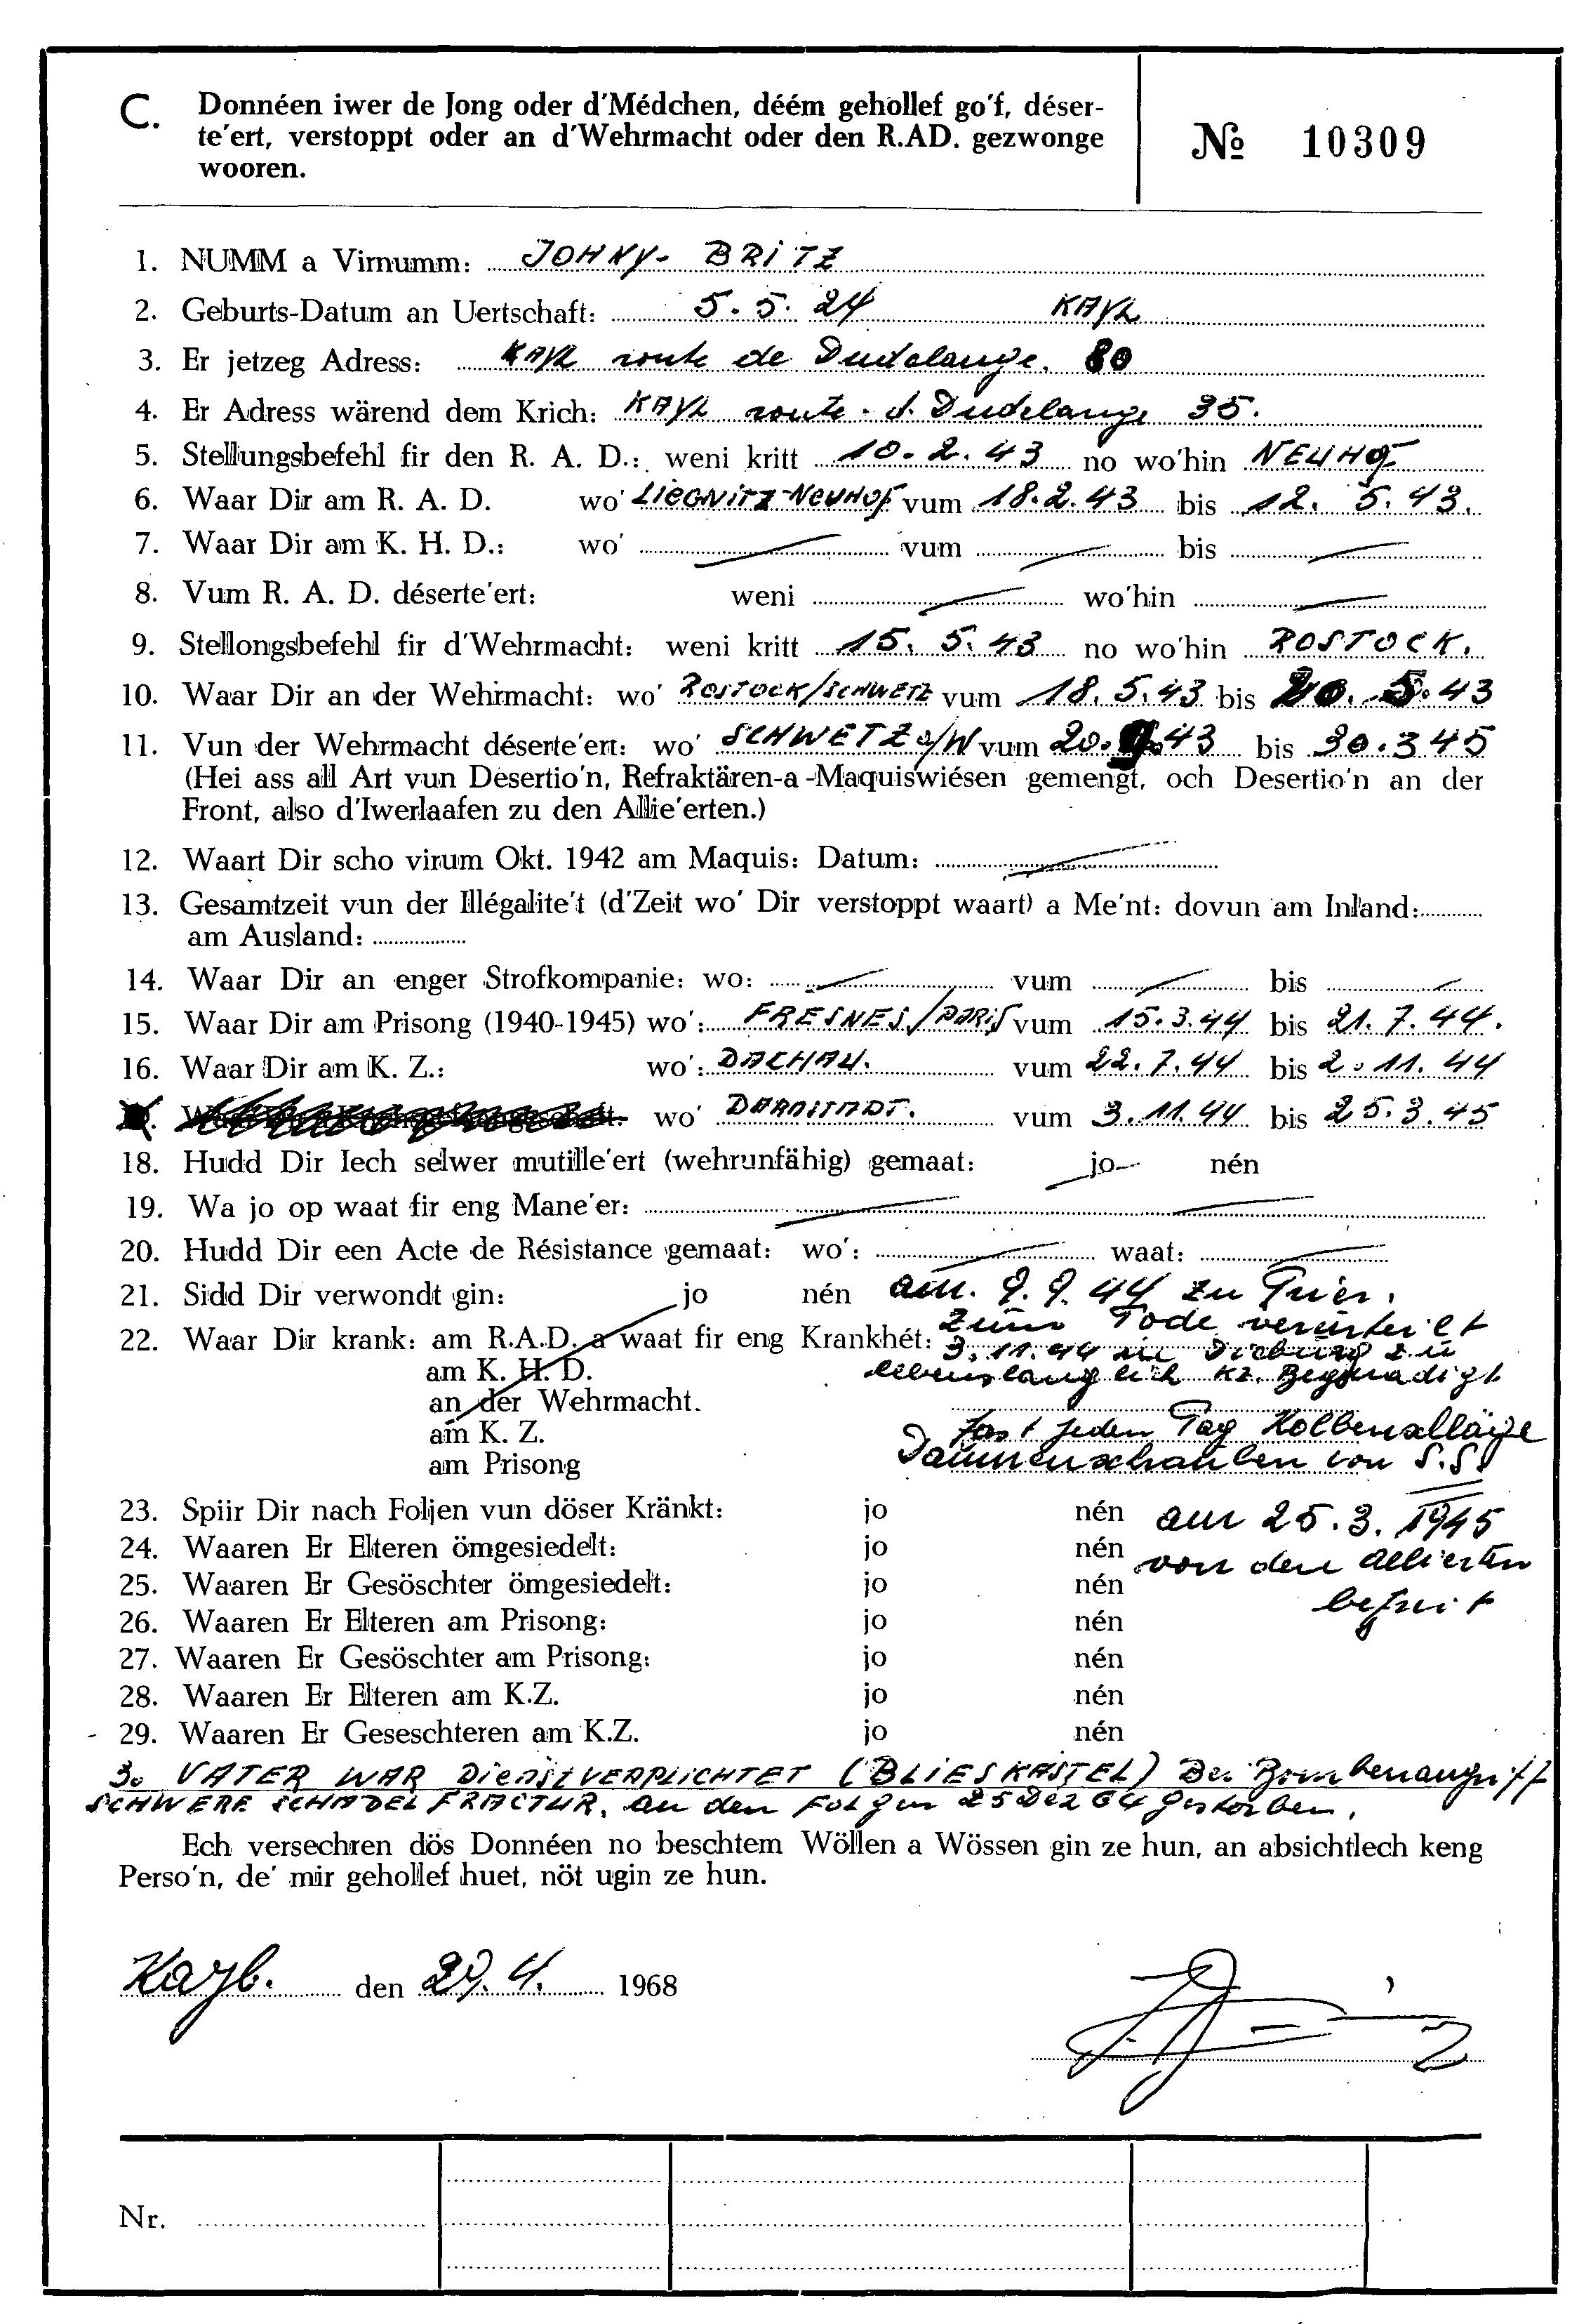 C. Donnéen iwer de Jong oder d'Médchen, déém gehollef go'f, déser-
te'ert, verstoppt oder an d'Wehrmacht oder den R.AD. gezwonge
wooren.
№ 10309
1. NUMM a Virnumm: JOHNY- BRITZ
2. Geburts-Datum an Uertschaft: 5. 5. 24 KAYL
3. Er jetzeg Adress: KAYL route de Dudelange. 80
4. Er Adress wärend dem Krich: KAYL route. d. Dudelange 35.
5. Stellungsbefehl fir den R. A. D.: weni kritt 10. 2. 43 no wo'hin NEUHOF
6. Waar Dir am R. A. D. wo' LIEGNITZ-NEUHOF vum 18.2.43 bis 12. 5. 43.
7. Waar Dir am K. H. D.: wo' vum bis
8. Vum R. A. D. déserte'ert: weni wo'hin
9. Stellongsbefehl fir d'Wehrmacht: weni kritt 15. 5. 43 no wo'hin ROSTOCK.
10. Waar Dir an der Wehrmacht: wo' ROSTOCK/SCHWETZ vum 18. 5. 43 bis 20. 43
11. Vun der Wehrmacht déserte'ert: wo' SCHWETZ a/W vum 20. 43 bis 30. 3 45
(Hei ass all Art vun Desertio'n, Refraktären-a -Maquiswiésen gemengt, och Desertio'n an der
Front, also d'Iwerlaafen zu den Allie'erten.)
12. Waart Dir scho virum Okt. 1942 am Maquis: Datum:
13. Gesamtzeit vun der Illégalite't (d'Zeit wo' Dir verstoppt waart) a Me'nt: dovun am Inland:
am Ausland:
14. Waar Dir an enger Strofkompanie: wo: vum bis
15. Waar Dir am Prisong (1940-1945) wo': FRESNES/PARIS vum 15. 3. 44 bis 21. 7. 44.
16. Waar Dir am K. Z.: wo': DACHAU. vum 22. 7. 44 bis 2. 11. 44
wo' DARMSTADT. vum 3. 11. 44 bis 25. 3. 45
18. Hudd Dir Iech selwer mutille'ert (wehrunfähig) gemaat: jo nén
19. Wa jo op waat fir eng Mane'er:
20. Hudd Dir een Acte de Résistance gemaat: wo': waat:
21. Sidd Dir verwondt gin: jo nén am. 9. 9. 44 zu Trier.
zum Tode verurteilt
22. Waar Dir krank: am R.A.D. a waat fir eng Krankhét: 3. 11. 44 in Dieburg zu
am K. H. D. lebenslänglich Kz. Begnadigt
an der Wehrmacht.
am K. Z. fast jeden Tag Kolbenschläge
am Prisong Daumenschrauben von S.S.
23. Spiir Dir nach Foljen vun döser Kränkt: jo nén am 25. 3. 1945
24. Waaren Er Elteren ömgesiedelt: jo nén von den Alliierten
25. Waaren Er Gesöschter ömgesiedelt: jo nén befreit
26. Waaren Er Elteren am Prisong: jo nén
27. Waaren Er Gesöschter am Prisong: jo nén
28. Waaren Er Elteren am K.Z. jo nén
29. Waaren Er Geseschteren am K.Z. jo nén
30 VATER WAR DIENSTVERPLICHTET (BLIESKASTEL) Bei Bombenangriff
SCHWERE SCHADELFRACTUR. an den FOLGEN 25 DEZ 64 gestorben.
Ech versechren dös Donnéen no beschtem Wöllen a Wössen gin ze hun, an absichtlech keng
Perso'n, de' mir gehollef huet, nöt ugin ze hun.
Kayl. den 29. 4. 1968
Nr.